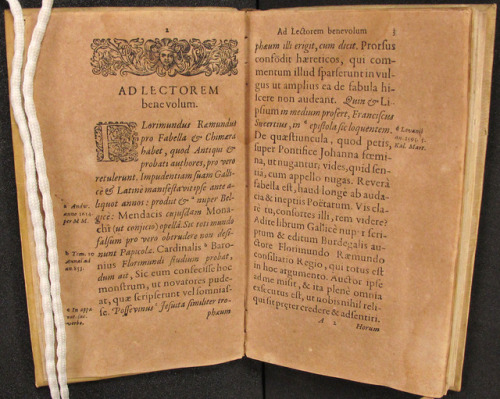 2
AD LECTOREM
benevolum.
FLorimundus Ræmundus
pro Fabella & Chimæra
habet, quod Antiqui &
probati authores, pro vero
retulerunt. Impudentiam suam Galli-
cè & Latinè manifestavit ipse ante a-
liquot annos: prodiit & nuper Bel-
gicè: Mendacis cujusdam Mona-
chi (ut conjicio) opellâ. Sic toti mundo
falsum pro vero obtrudere non desi-
nunt Papicolæ. Cardinalis b Baro-
nius Florimundi studium probat,
dum ait, Sic eum confecisse hoc
monstrum, ut novatores pude-
at, quæ scripserunt vel somnias-
se. Possevinus c Jesuita similiter tro-
phæum
a Antv.
anno 1614.
per
b Tom. 10.
Annal. ad
an. 853.
c In
verbo.
Ad Lectorem benevolum 3
phæum illi erigit, cum dicit. Prorsus
confodit hæreticos, qui com-
mentum illud sparserunt in vul-
gus ut amplius ea de fabula hi-
scere non audeant. Quin & Li-
psium in medium profert, Franciscus
Sweertius, in d epistola sic loquentem.
De quæstiuncula, quod petis,
super Pontifice Johanna fœmi-
na, ut nugantur, vides, quid sen-
tiã, cum appello nugas. Reverâ
fabella est, haud longe ab auda-
cia & ineptiis Poëtarum. Vis cla-
rè tu, confortes illi, rem videre?
Adite librum Gallicè nup & scri-
ptum & editum Burdegalis au-
ctore Florimundo Ræmundo
consiliario Regio, qui totus est
in hoc argumento. Auctor ipse
ad me misit, & ita plenè omnia
executus est, ut nobis nihil reli-
qui sit præter credere & adsentiri.
A 2 Horum
d Lovanii
an. 1595. 5.
Kal. Mart.